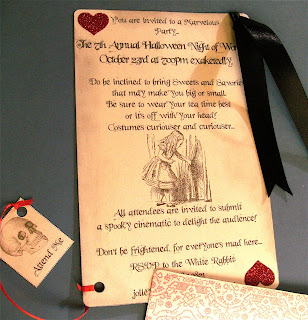 You are invited to a Marvelous
Party...
The 7th Annual Halloween Night of
October 23rd at 7:00pm exaketedly.
Do be inclined to bring Sweets and Savories
that may make you big or small.
Be sure to wear your tea time best
or it's off with your head!
Costumes curiouser and curiouser...
All attendees are invited to submit
a spooky cinematic to delight the audience!
Don't be frightened, for everyone's mad here...
RSVP to the White Rabbit
Attend Me